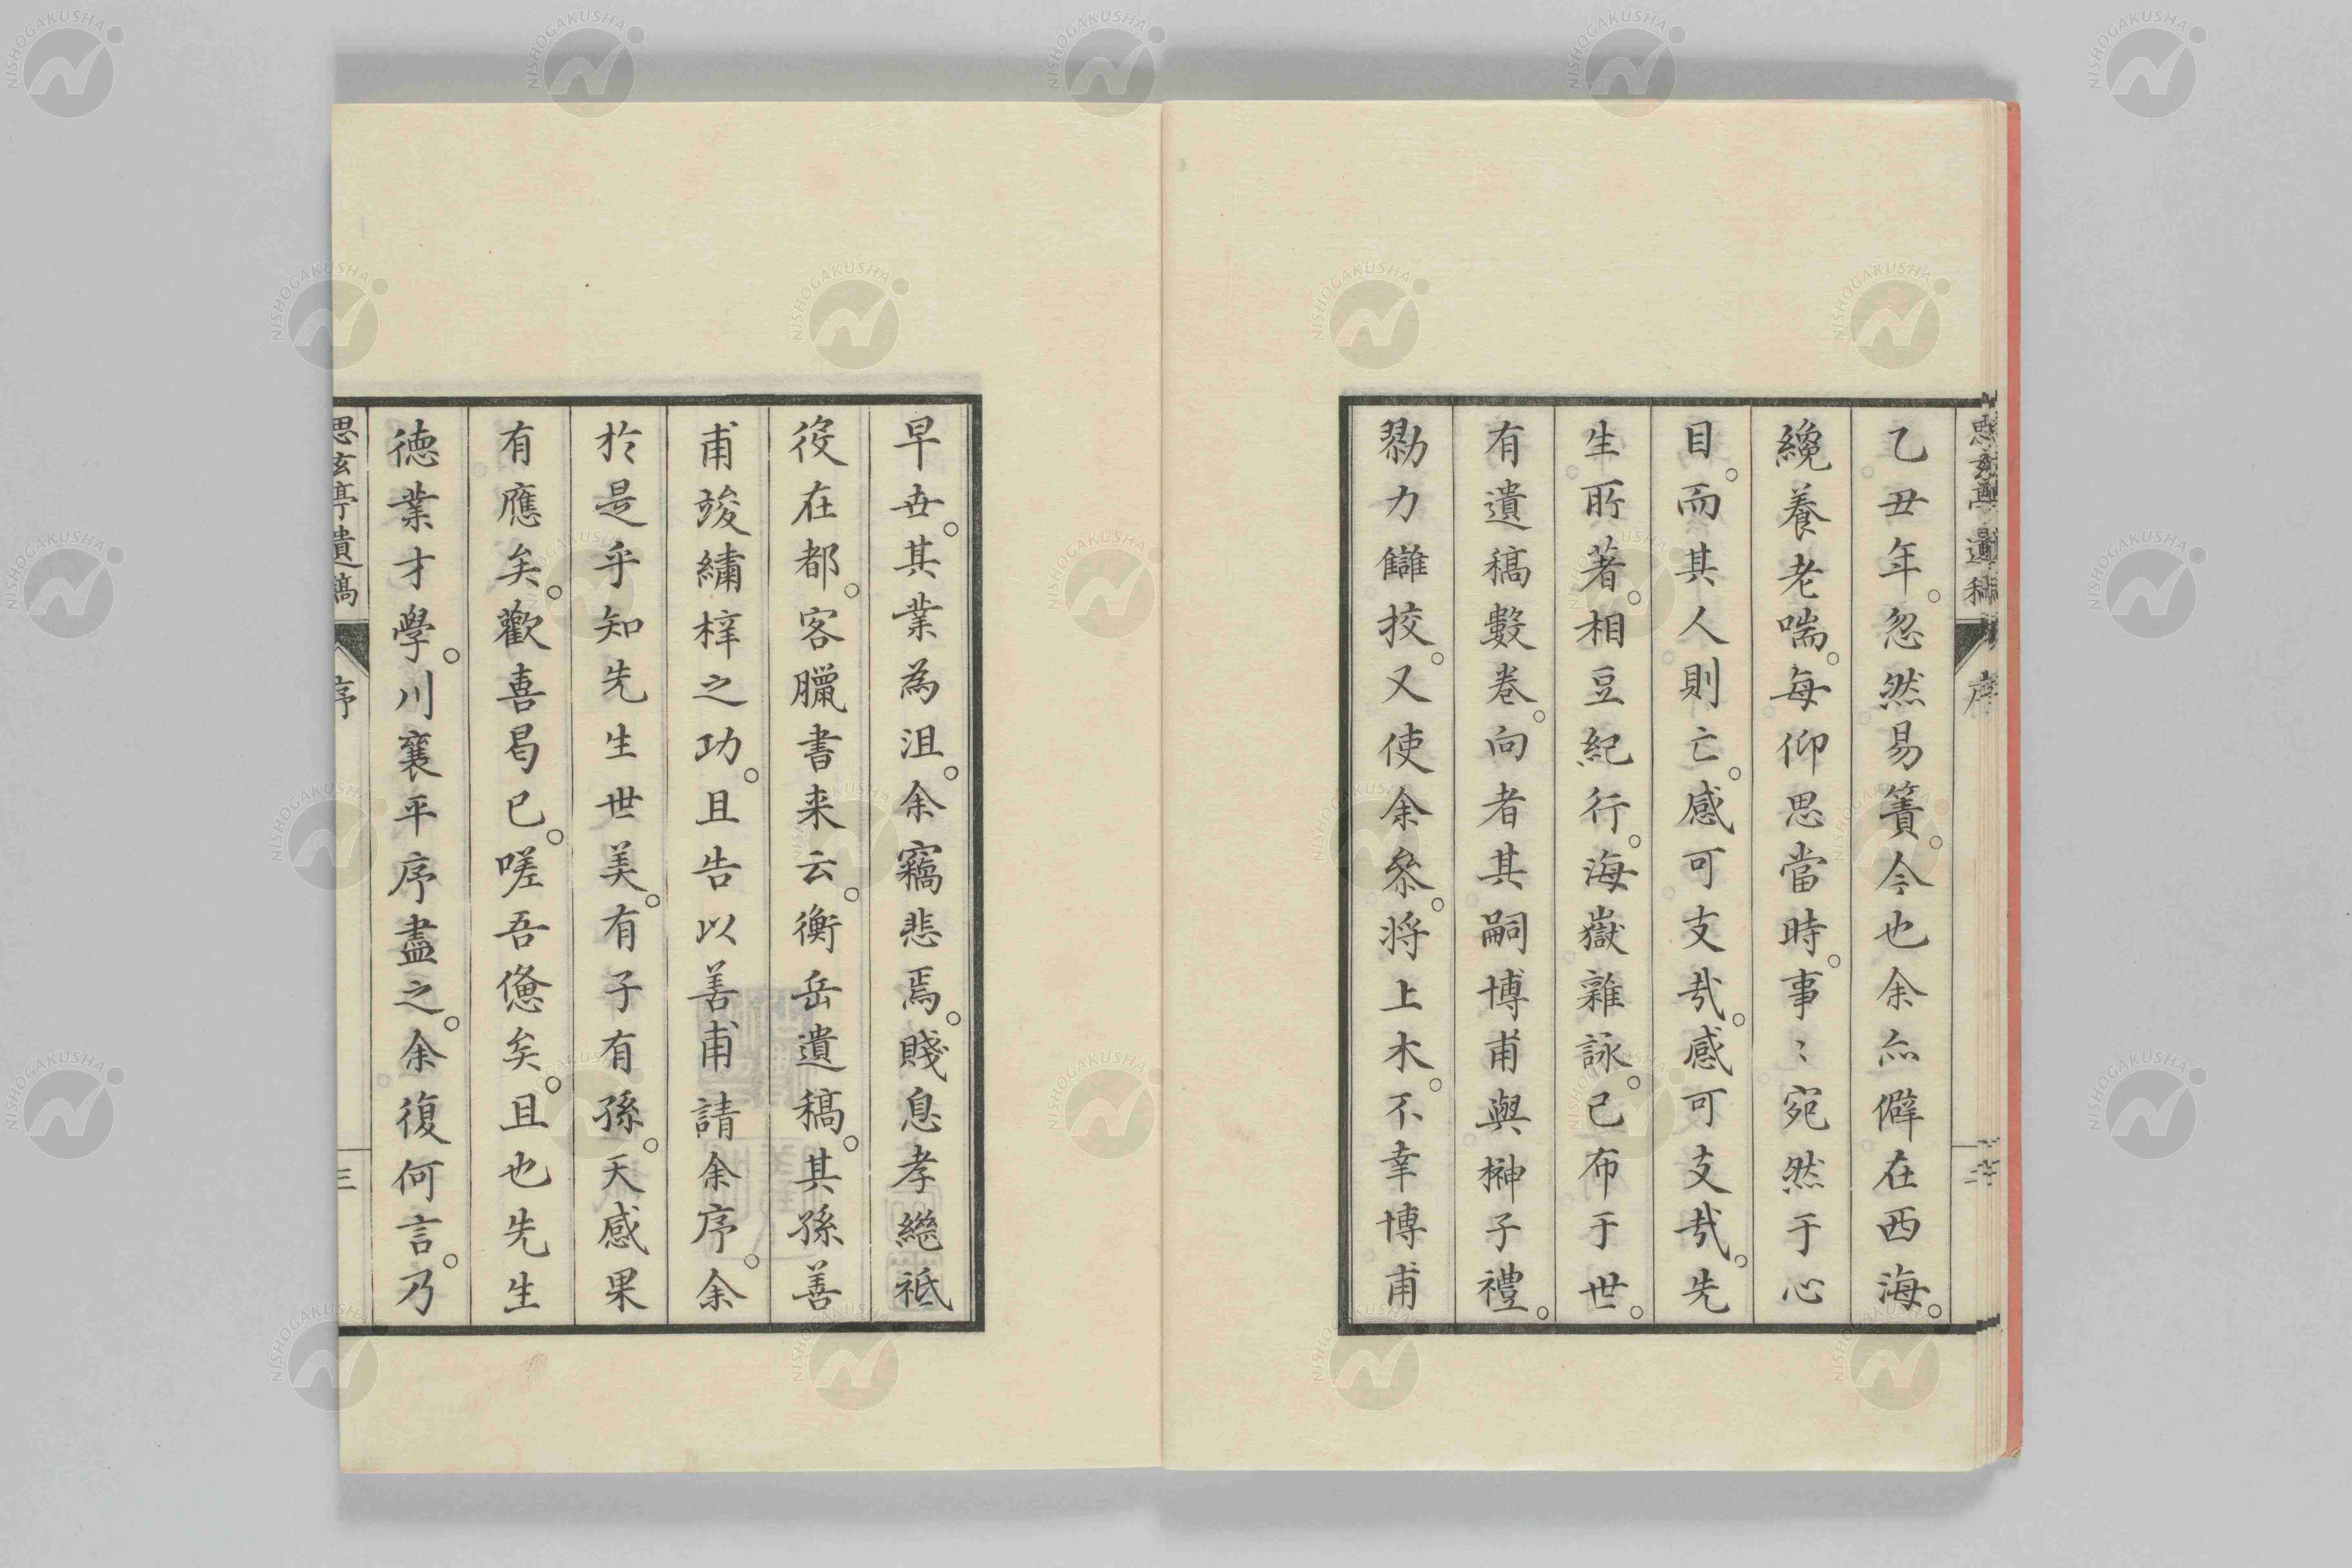 思玄亭遺稿 序 二
乙丑年。忽然易簀。今也余亦僻在西海。
纔養老喘。每仰思當時。事〻宛然于心
目。而其人則亡。感可支哉。感可支哉。先
生所著。相豆紀行。海嶽雜詠。已布于世。
有遺稿數卷。向者其嗣博甫與榊子禮。
勠力讎校。又使余參。將上木。不幸博甫
早世。其業為沮。余竊悲焉。賤息孝繼祗
役在都。客臘書来云。衡岳遺稿。其孫善
甫竣繡梓之功。且告以善甫請余序。余
於是乎知先生世美。有子有孫。天感果
有應矣。歡喜曷已。嗟吾憊矣。且也先生
德業才學。川襄平序盡之。余復何言。乃
思玄亭遺稿 序 三
NISHOGAKUSHA